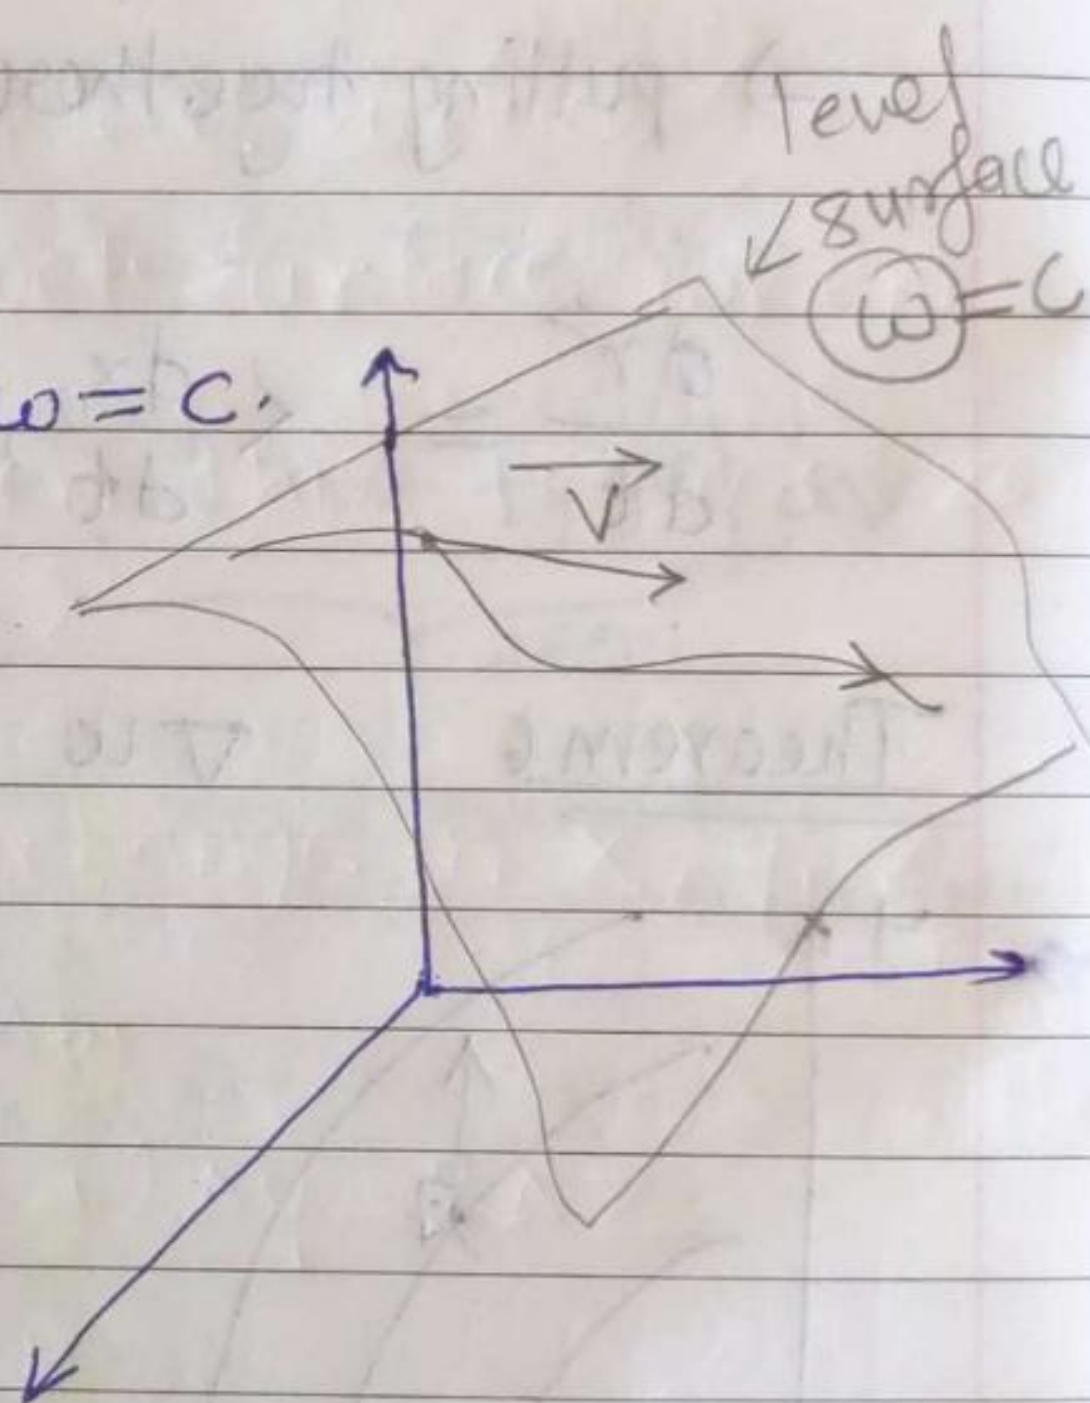 level
surface
ω = C
ω = C.
V